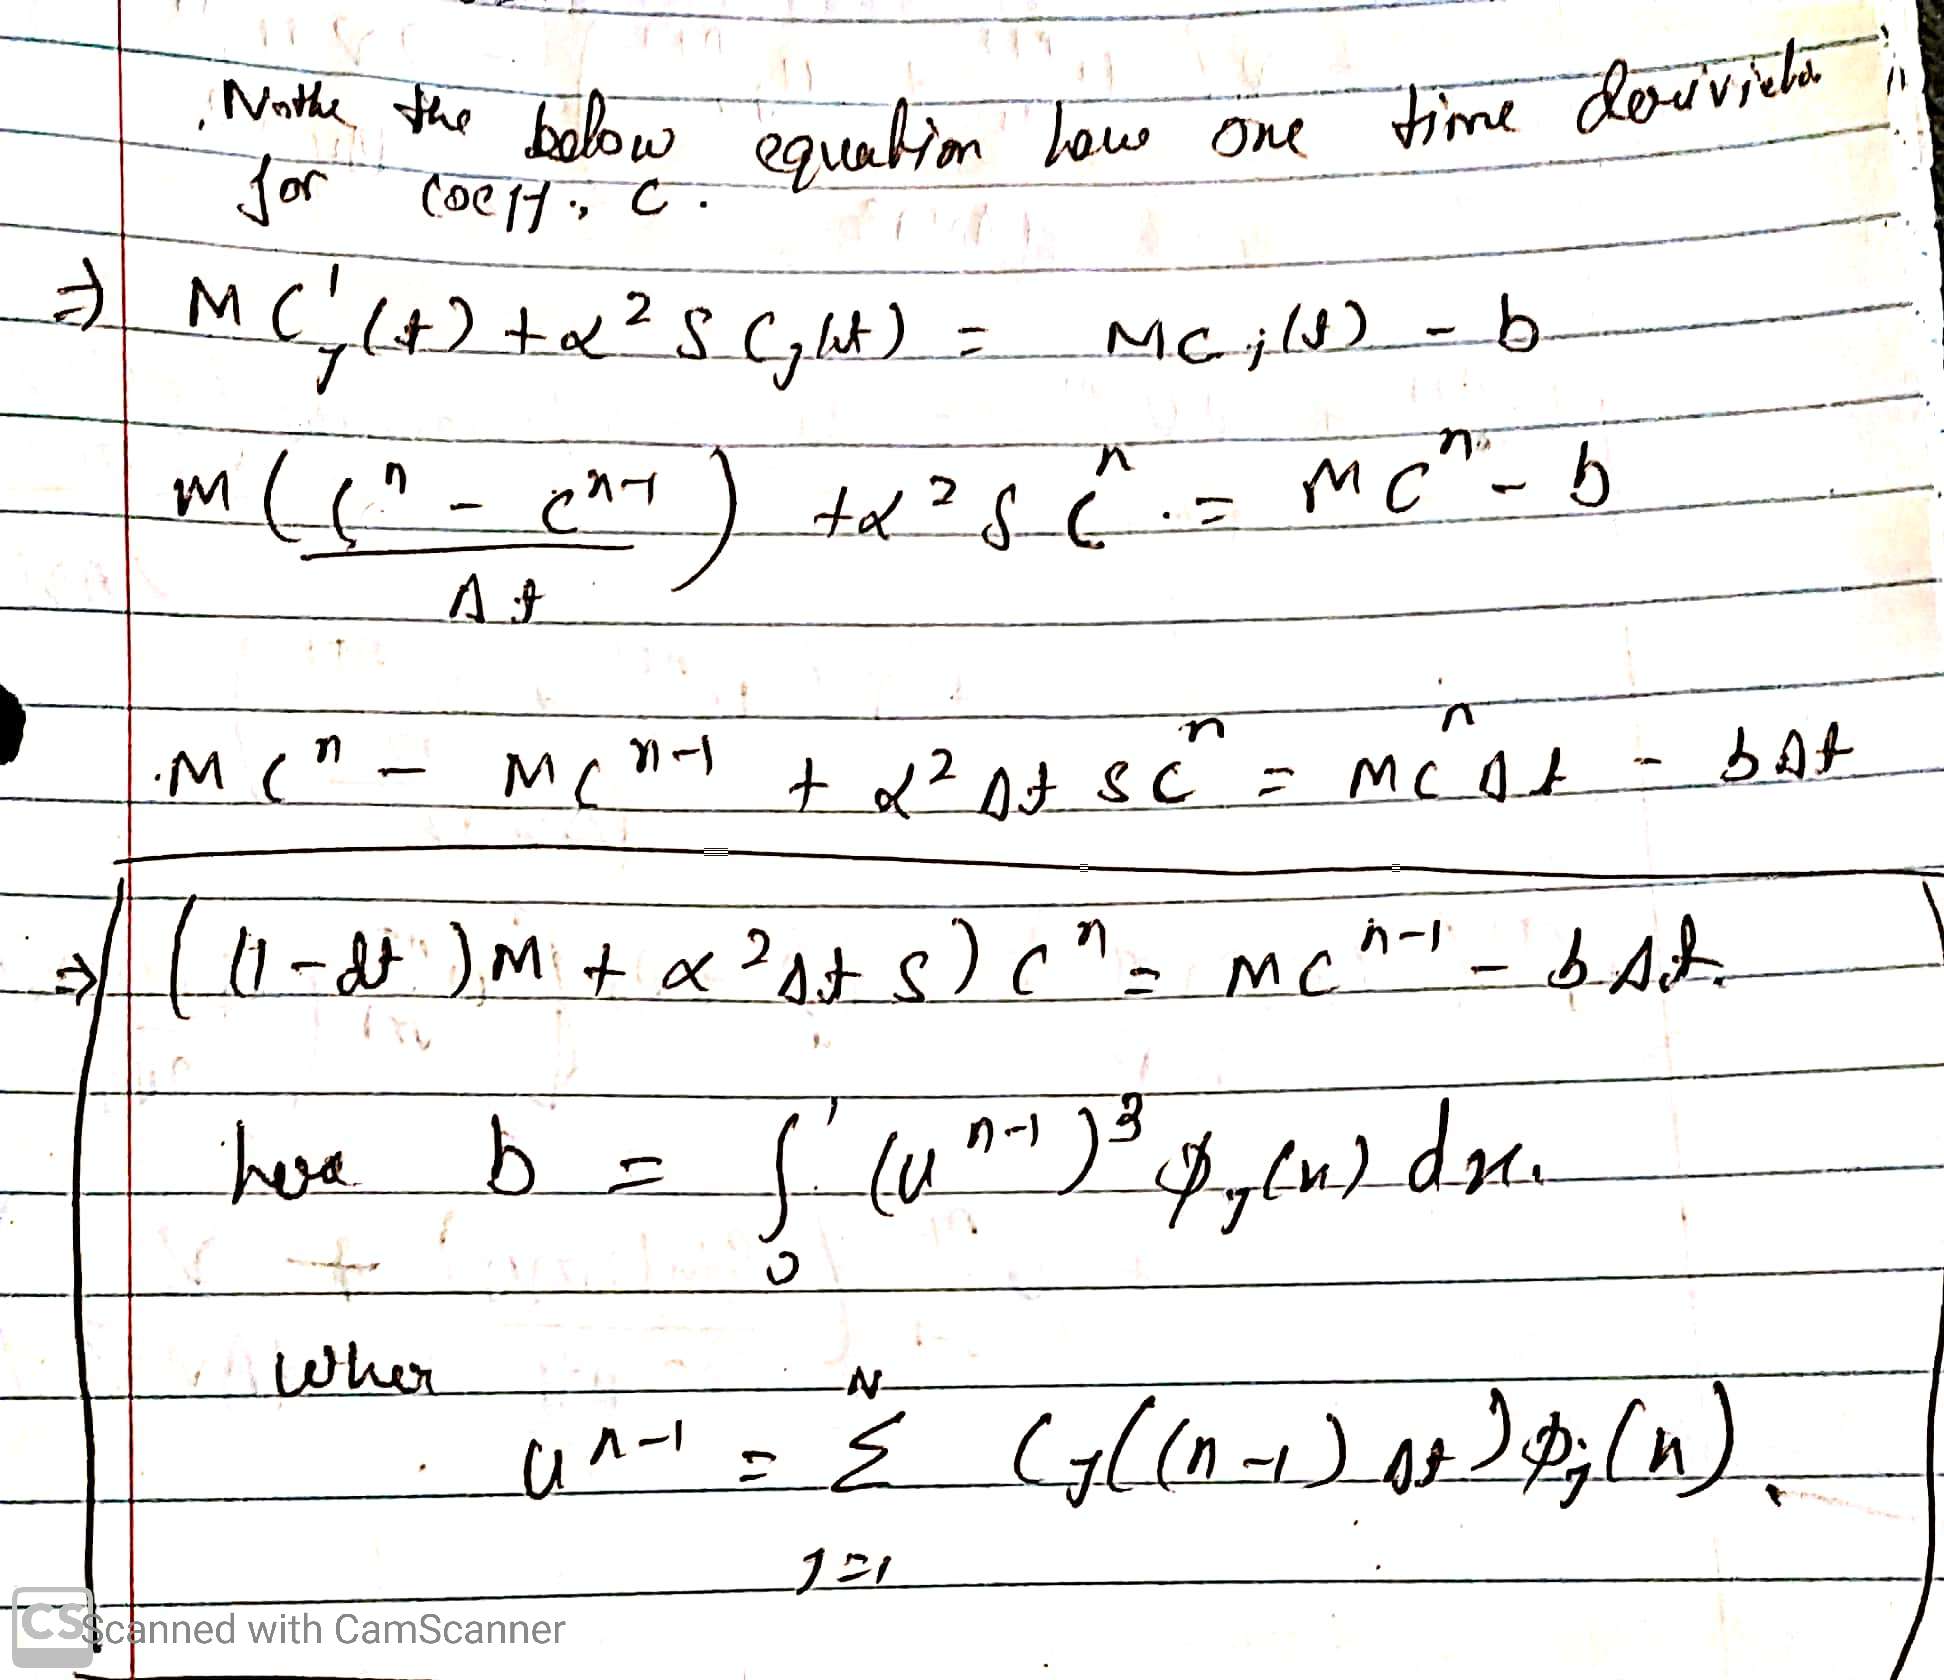 Nothe the below equation have one time derivieta
for coeff., c.
⇒ M C'j(t) + α² S Cj(t) = M Cj(t) - b
M ( (Cⁿ - Cⁿ⁻¹) / Δt ) + α² S Cⁿ = M Cⁿ - b
M Cⁿ - M Cⁿ⁻¹ + α² Δt S Cⁿ = M Cⁿ Δt - b Δt
⇒ ( (1 - dt) M + α² Δt S ) Cⁿ = M Cⁿ⁻¹ - b Δt.
here b = ∫₀¹ (uⁿ⁻¹)³ φj(x) dx.
wher
uⁿ⁻¹ = Σ_{j=1}^{N} Cj((n-1) Δt) φj(x).
CS Scanned with CamScanner